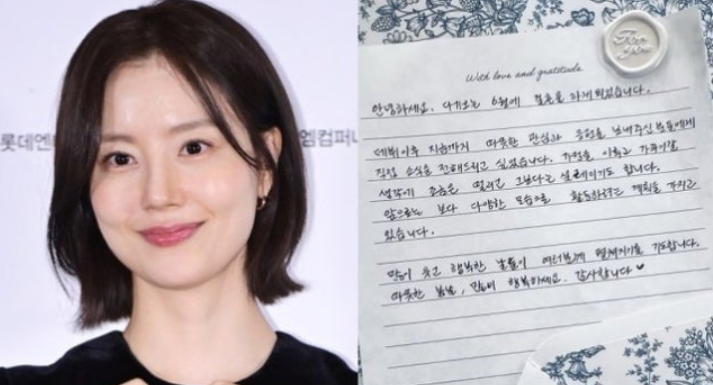 롯데엔
엠컴퍼니
For
you
With love and gratitude
안녕하세요. 다가오는 6월에 결혼을 하게 되었습니다.
데뷔이후 지금까지 따뜻한 관심과 응원을 보내주신 분들에게
직접 소식을 전해드리고 싶었습니다. 가정을 이루고 가꾸어갈
생각에 조금은 떨리고 그보다는 설레이기도 합니다.
앞으로는 보다 다양한 모습으로 활동하려는 계획을 가지고
있습니다.
많이 웃고 행복한 날들이 여러분께 펼쳐지기를 기도합니다.
따뜻한 봄날, 행복하세요. 감사합니다♥